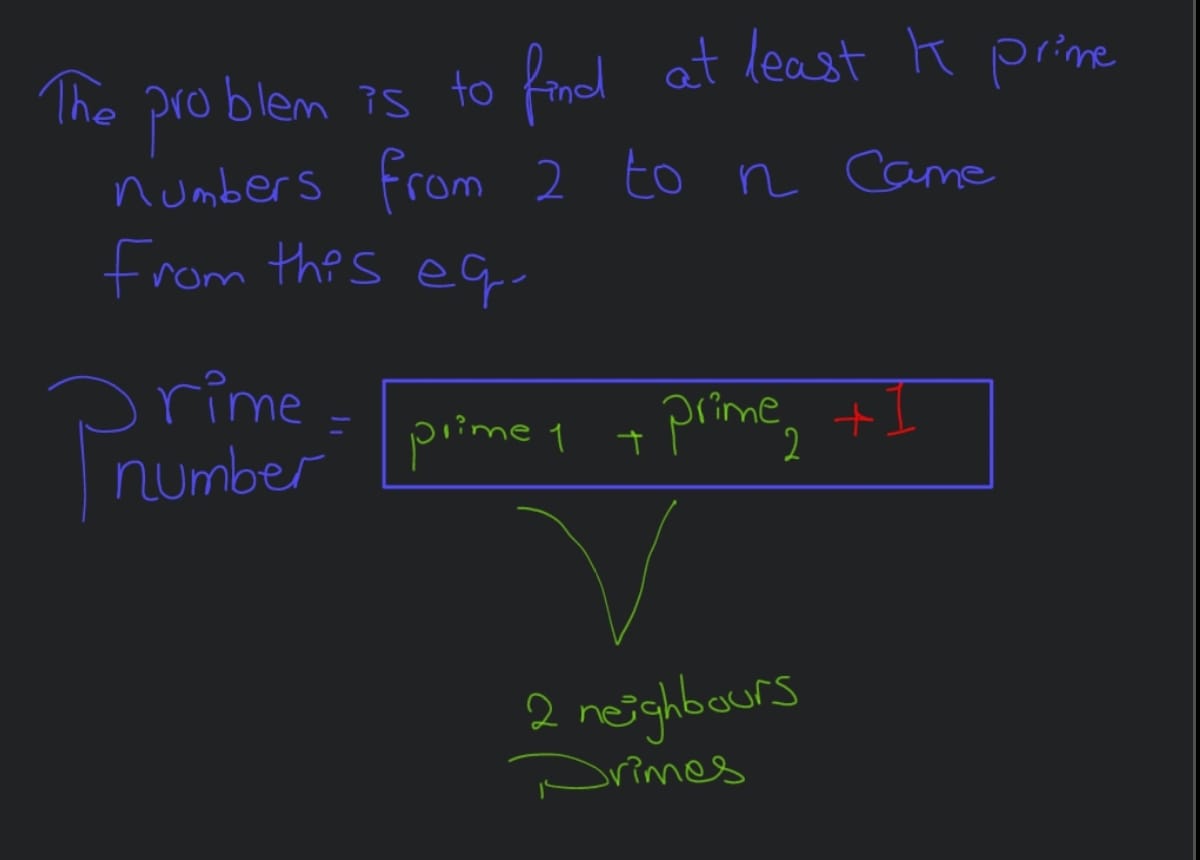 The problem is to find at least K prime
numbers from 2 to n Came
from this eq.
Prime number = prime 1 + prime 2 + 1
2 neighbours
Primes